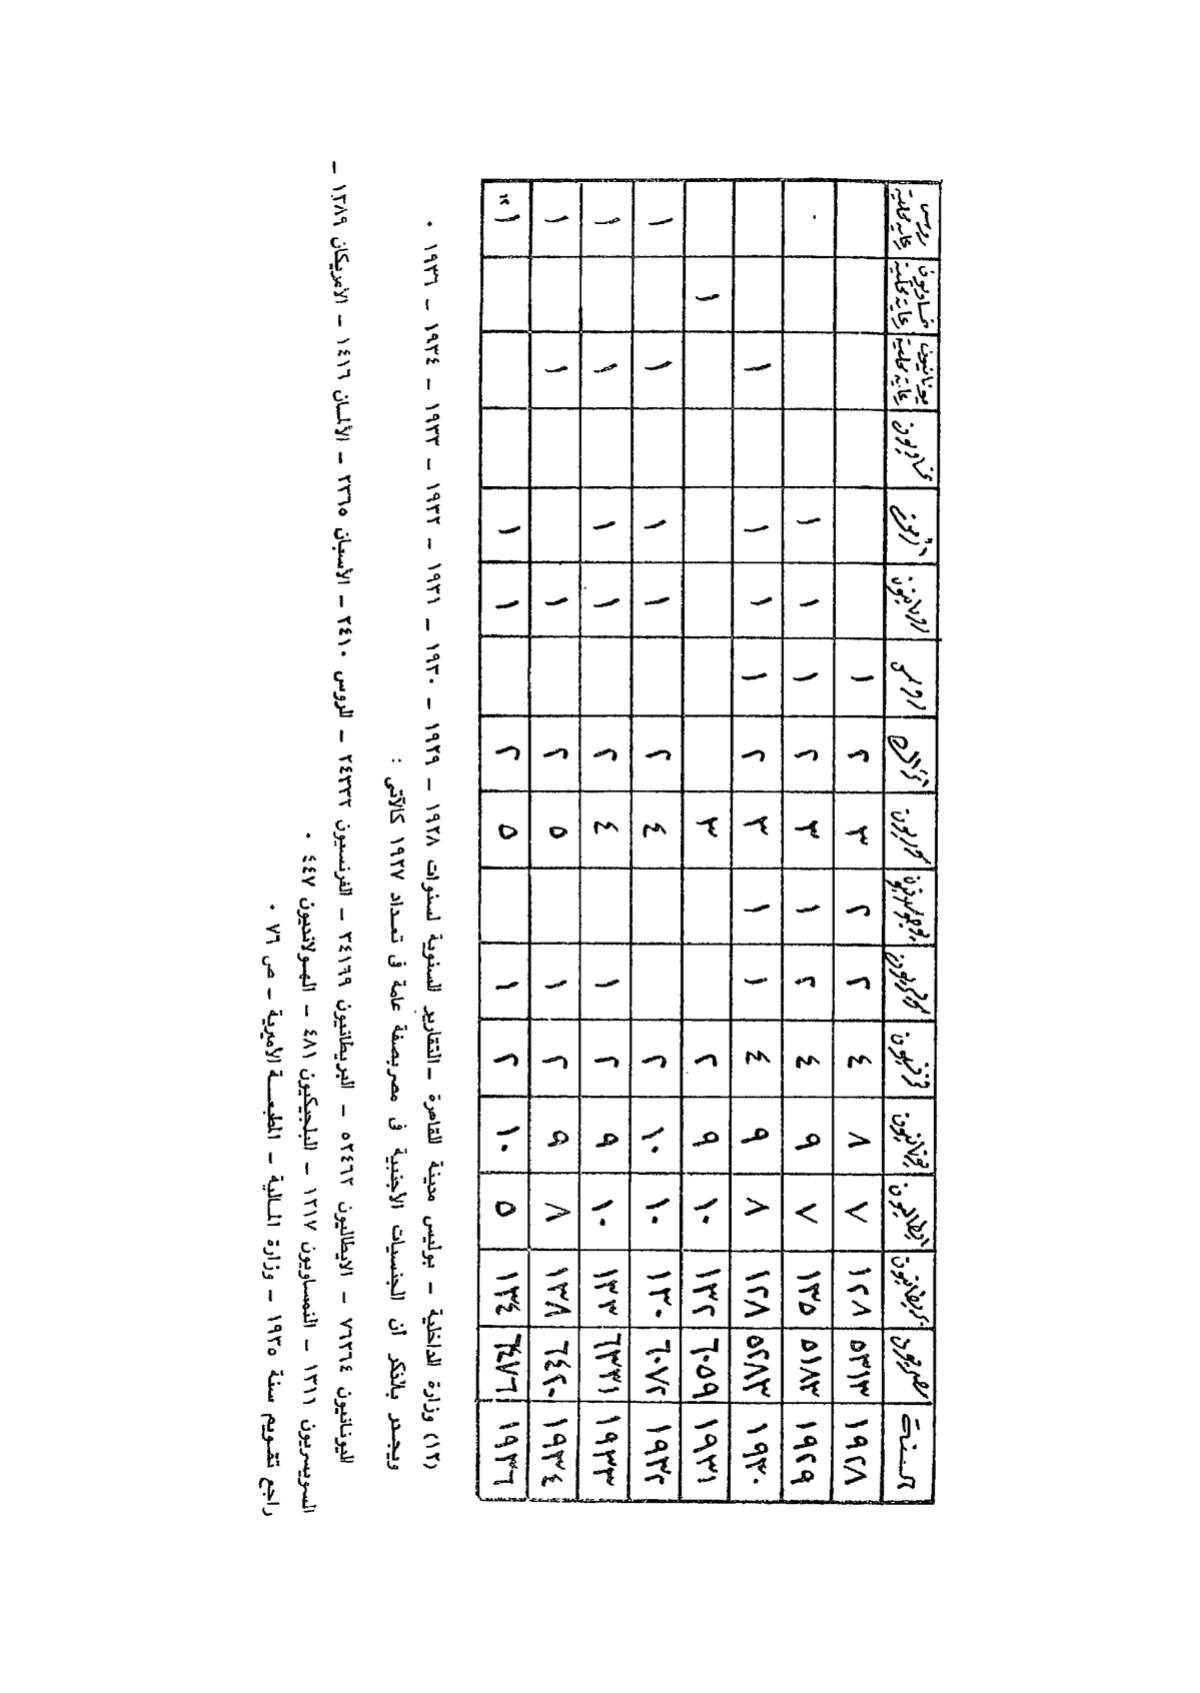 السنة مصريون بريطانيون إيطاليون يونانيون فرنسيون سوريون أتراك روس رومانيون أرمن نمساويون يونانيون رعاية محلية نمساويون رعاية محلية روس رعاية محلية
١٩٢٨ ٥٣١٣ ١٢٨ ٧ ٨ ٤ ٢ ٢ ٣ ٢ ١
١٩٢٩ ٥١٨٣ ١٣٥ ٧ ٩ ٤ ٢ ١ ٣ ٢ ١ ١ ١
١٩٣٠ ٥٢٨٣ ١٢٨ ٨ ٩ ٤ ١ ١ ٣ ٢ ١ ١ ١ ١
١٩٣١ ٦٠٥٩ ١٣٢ ١٠ ٩ ٢ ٣ ١
١٩٣٢ ٦٠٧٢ ١٣٠ ١٠ ١٠ ٢ ٤ ٢ ١ ١ ١ ١
١٩٣٣ ٦٣٣١ ١٣٣ ١٠ ٩ ٢ ١ ٤ ٢ ١ ١ ١ ١
١٩٣٤ ٦٤٢٠ ١٣٨ ٨ ٩ ٢ ١ ٥ ٢ ١ ١ ١
١٩٣٦ ٦٤٧٦ ١٣٤ ٥ ١٠ ٢ ١ ٥ ٢ ١ ١ ١
(١٢) وزارة الداخلية – بوليس مدينة القاهرة – التقارير السنوية لسنوات ١٩٢٨ – ١٩٢٩ – ١٩٣٠ – ١٩٣١ – ١٩٣٢ – ١٩٣٣ – ١٩٣٤ – ١٩٣٦ ٠
ويجدر بالذكر أن الجنسيات الأجنبية فى مصر بصفة عامة فى تعداد ١٩٢٧ كالآتى :
اليونانيون ٧٦٢٦٤ – الايطاليون ٥٢٤٦٢ – البريطانيون ٣٤١٦٩ – الفرنسيون ٢٤٣٣٢ – الروس ٢٤١٠ – الأسبان ٢٣٦٥ – الألمان ١٤١٦ – الأمريكان ١٣٨٩ –
السويسريون ١٣١١ – النمساويون ١٢١٧ – البلجيكيون ٤٨١ – الهولانديون ٤٤٧ ٠
راجع تقويم سنة ١٩٣٥ – وزارة المالية – المطبعة الأميرية – ص ٧٦ ٠